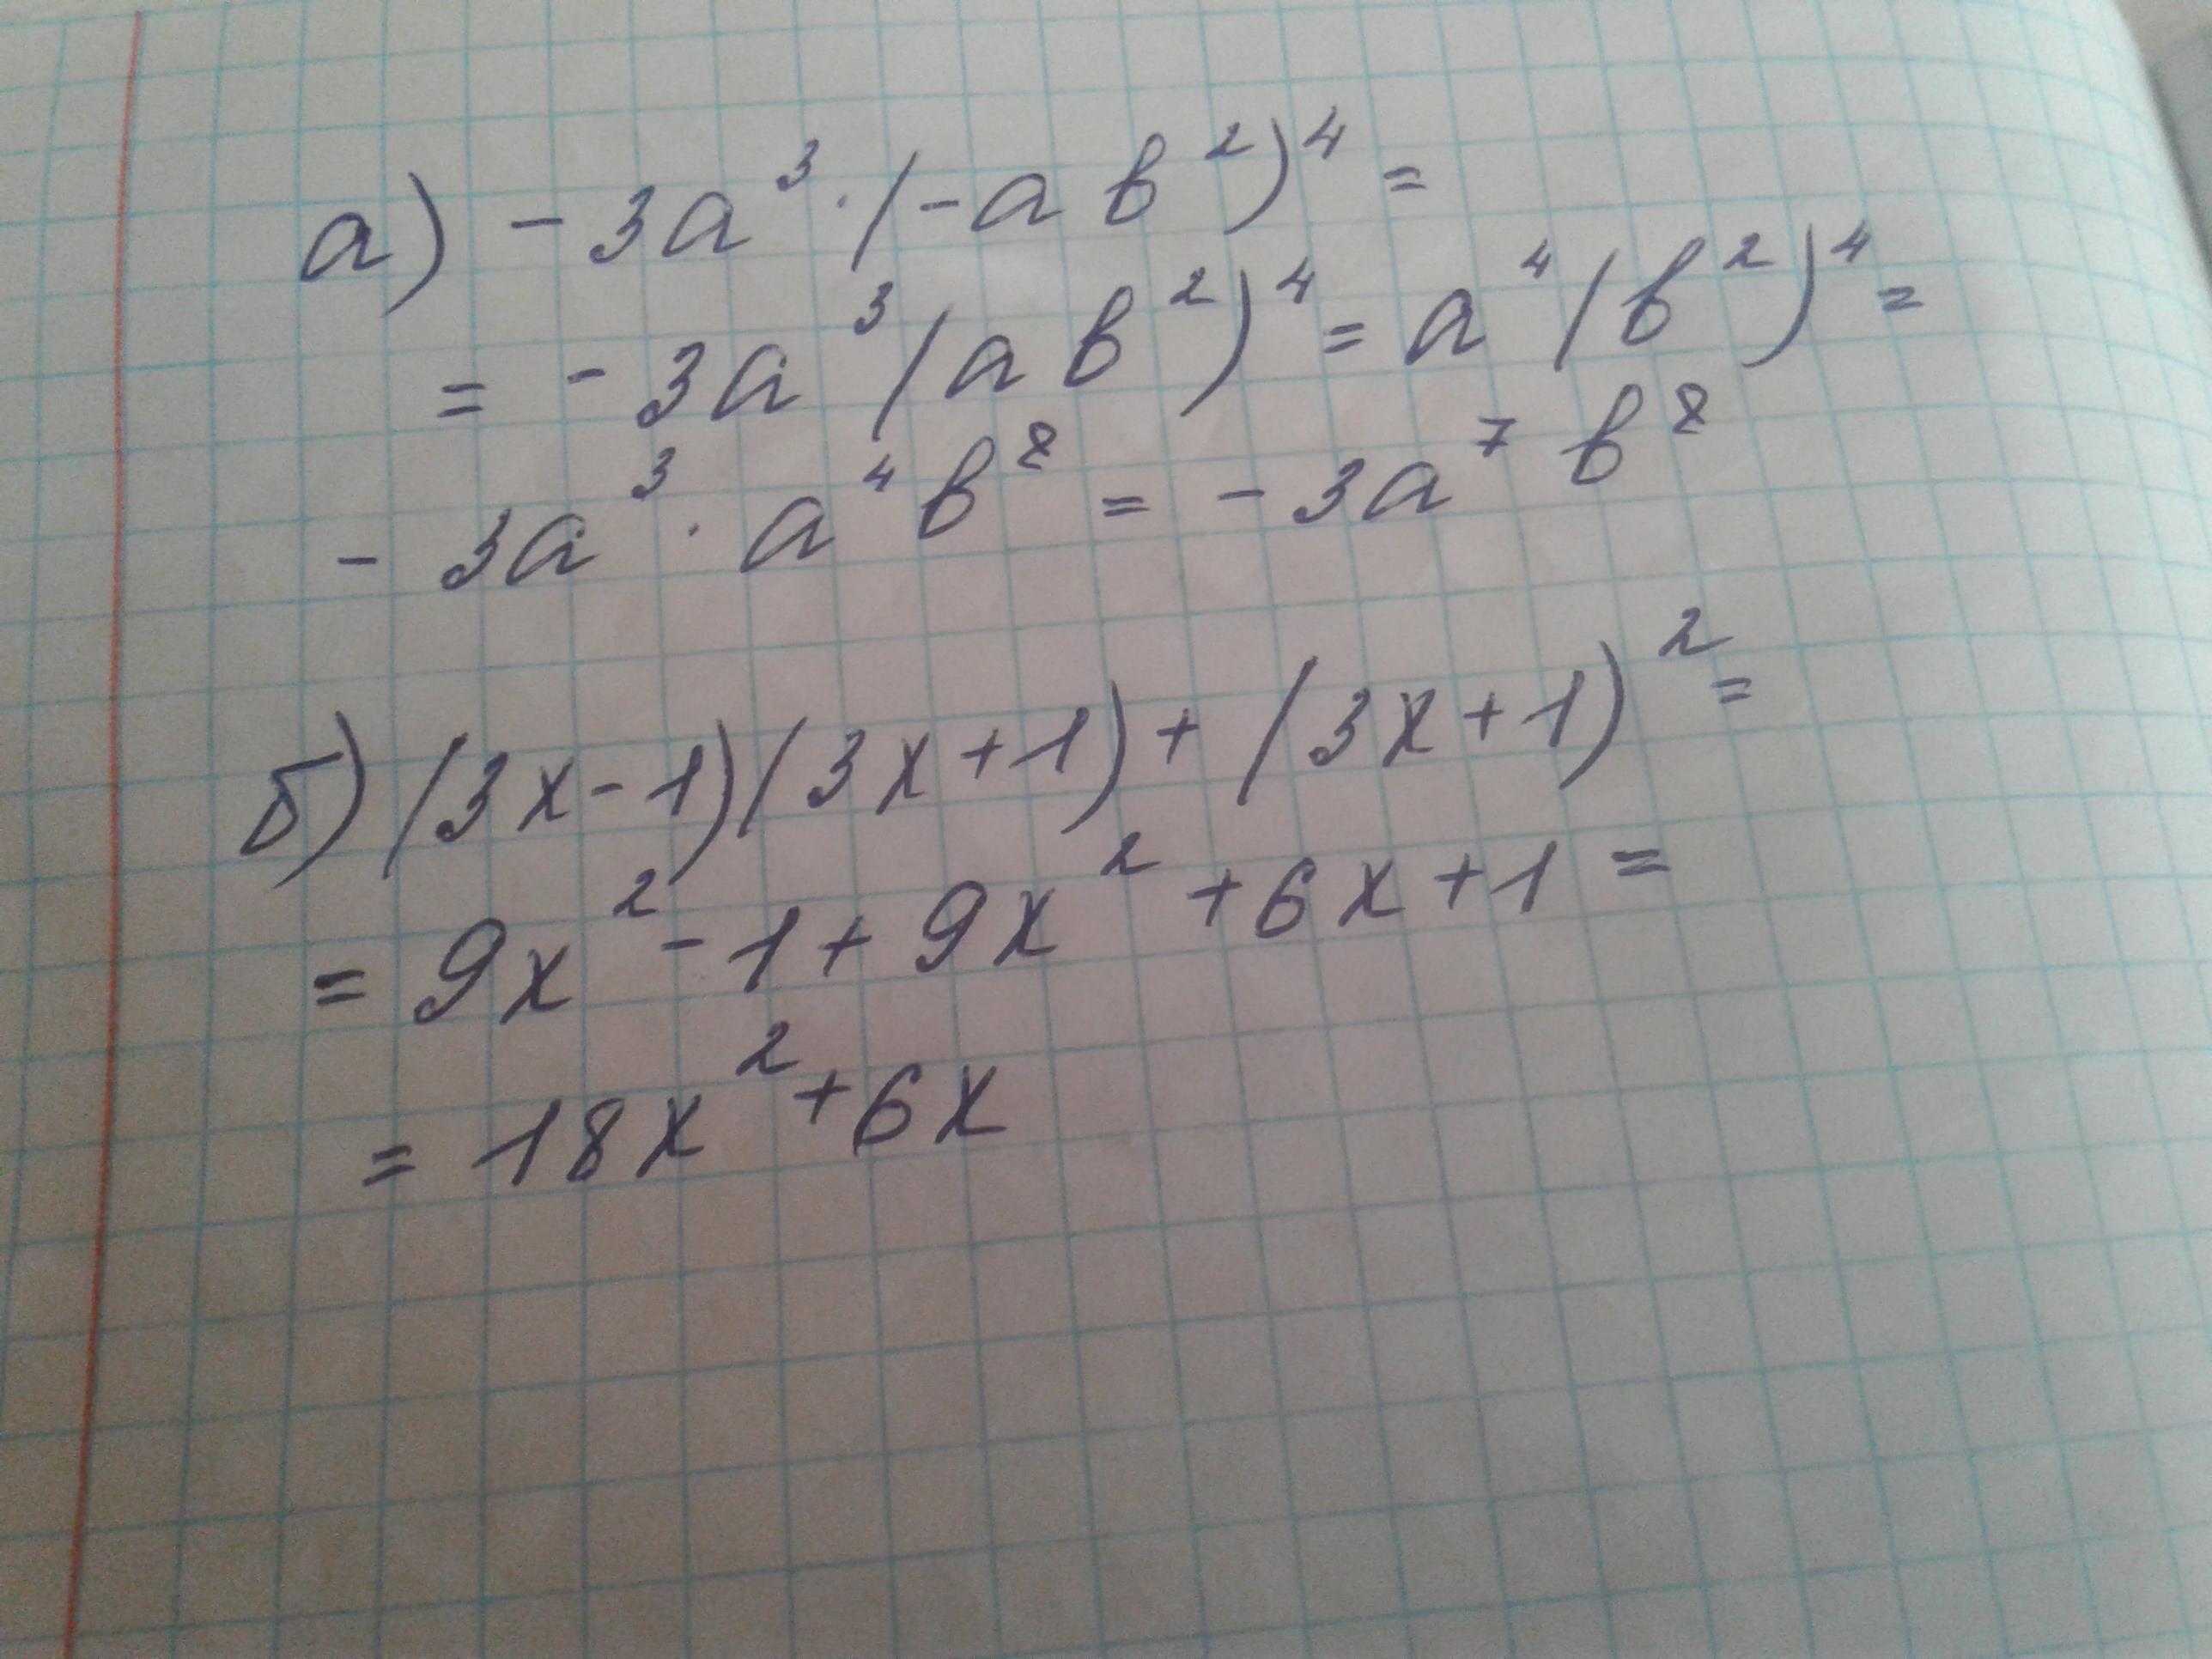 а) - 3a³ · (-aв²)⁴ =
= - 3a³(aв²)⁴ = a⁴(в²)⁴ =
- 3a³ · a⁴в⁸ = - 3a⁷в⁸
б) (3x-1)(3x+1) + (3x+1)² =
= 9x² - 1 + 9x² + 6x + 1 =
= 18x² + 6x